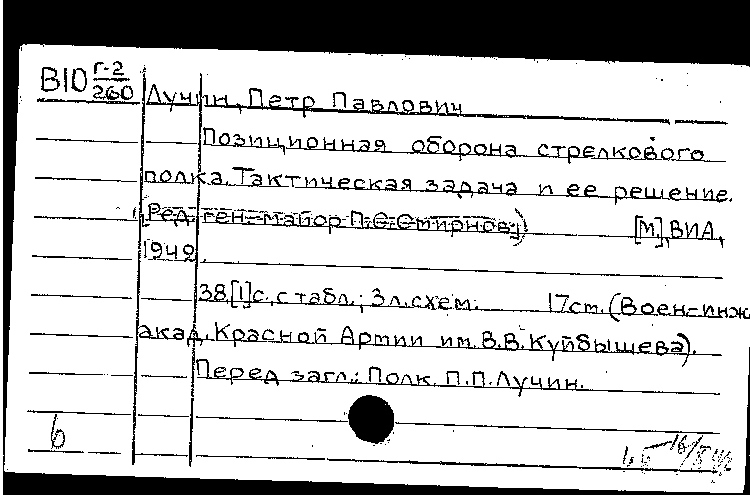 В10 Г-2/260
Лучин, Петр Павлович
Позиционная оборона стрелкового
полка. Тактическая задача и ее решение.
(Ред. ген.-майор П.С. Смирнов.) [М], ВИА,
1942.
38 [1] с., с табл.; 3 л. схем. 17 см. (Воен.-инж.
акад. Красной Армии им. В.В. Куйбышева).
Перед загл.: Полк. П.П. Лучин.
6